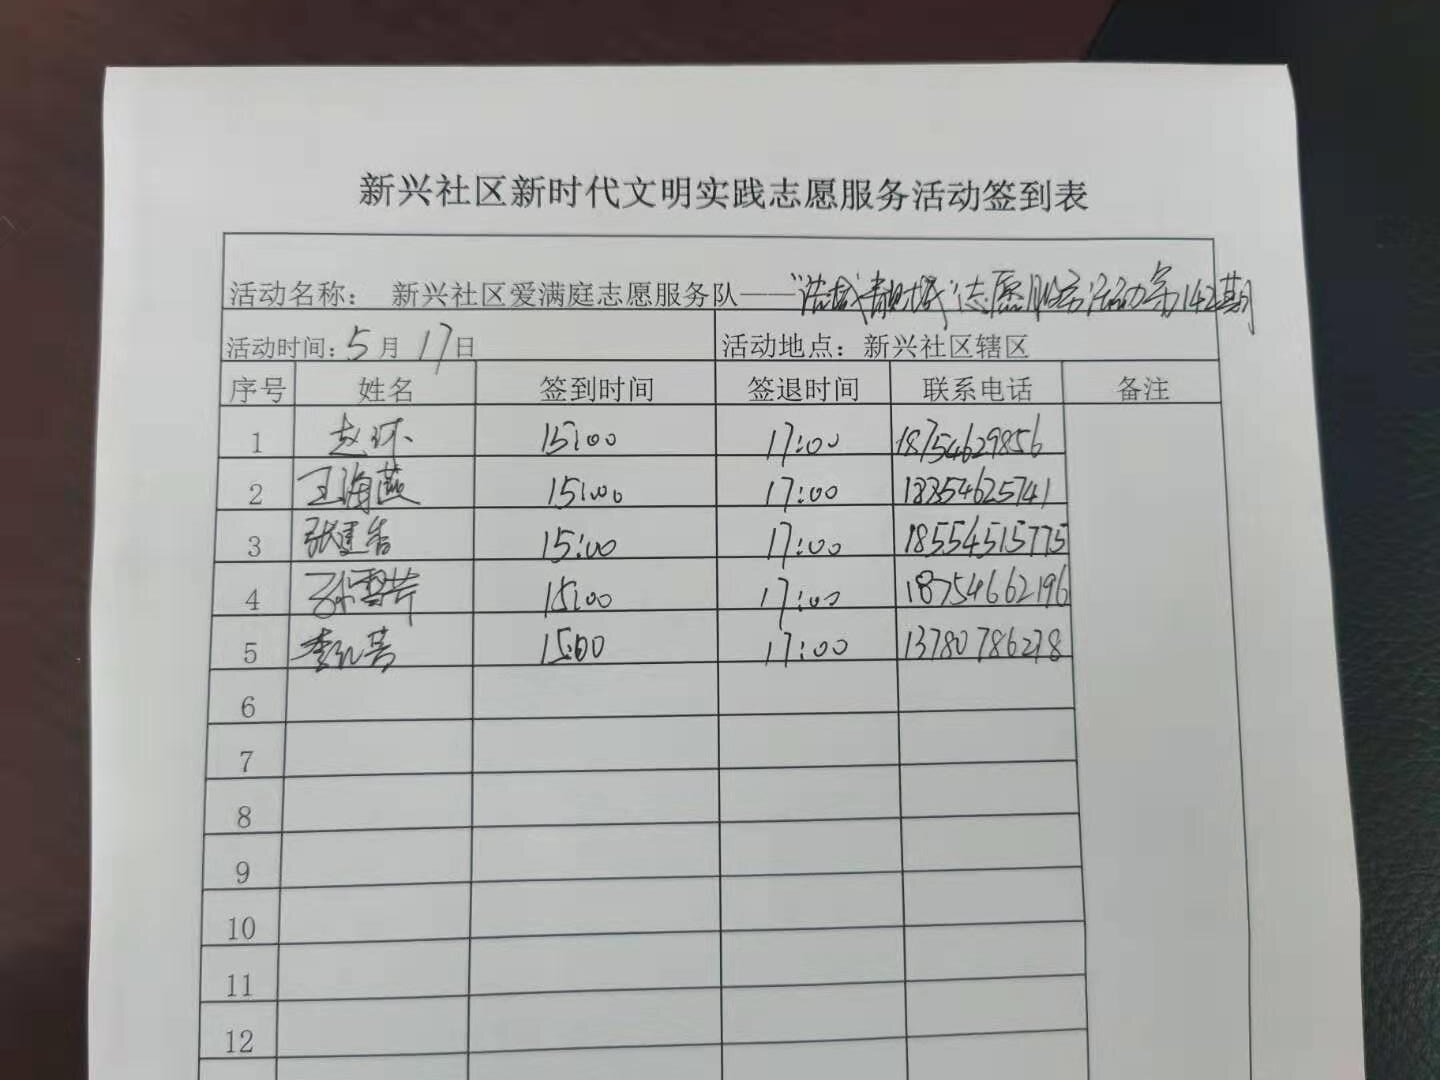 新兴社区新时代文明实践志愿服务活动签到表
活动名称： 新兴社区爱满庭志愿服务队——“洁城靓城”志愿服务活动第142期
活动时间：5月17日 活动地点：新兴社区辖区
序号 姓名 签到时间 签退时间 联系电话 备注
1 赵环 15:00 17:00 18754629856
2 王海燕 15:00 17:00 18354625741
3 张建 15:00 17:00 18554515775
4 孙雪芹 15:00 17:00 18754662196
5 李 15:00 17:00 13780786278
6
7
8
9
10
11
12